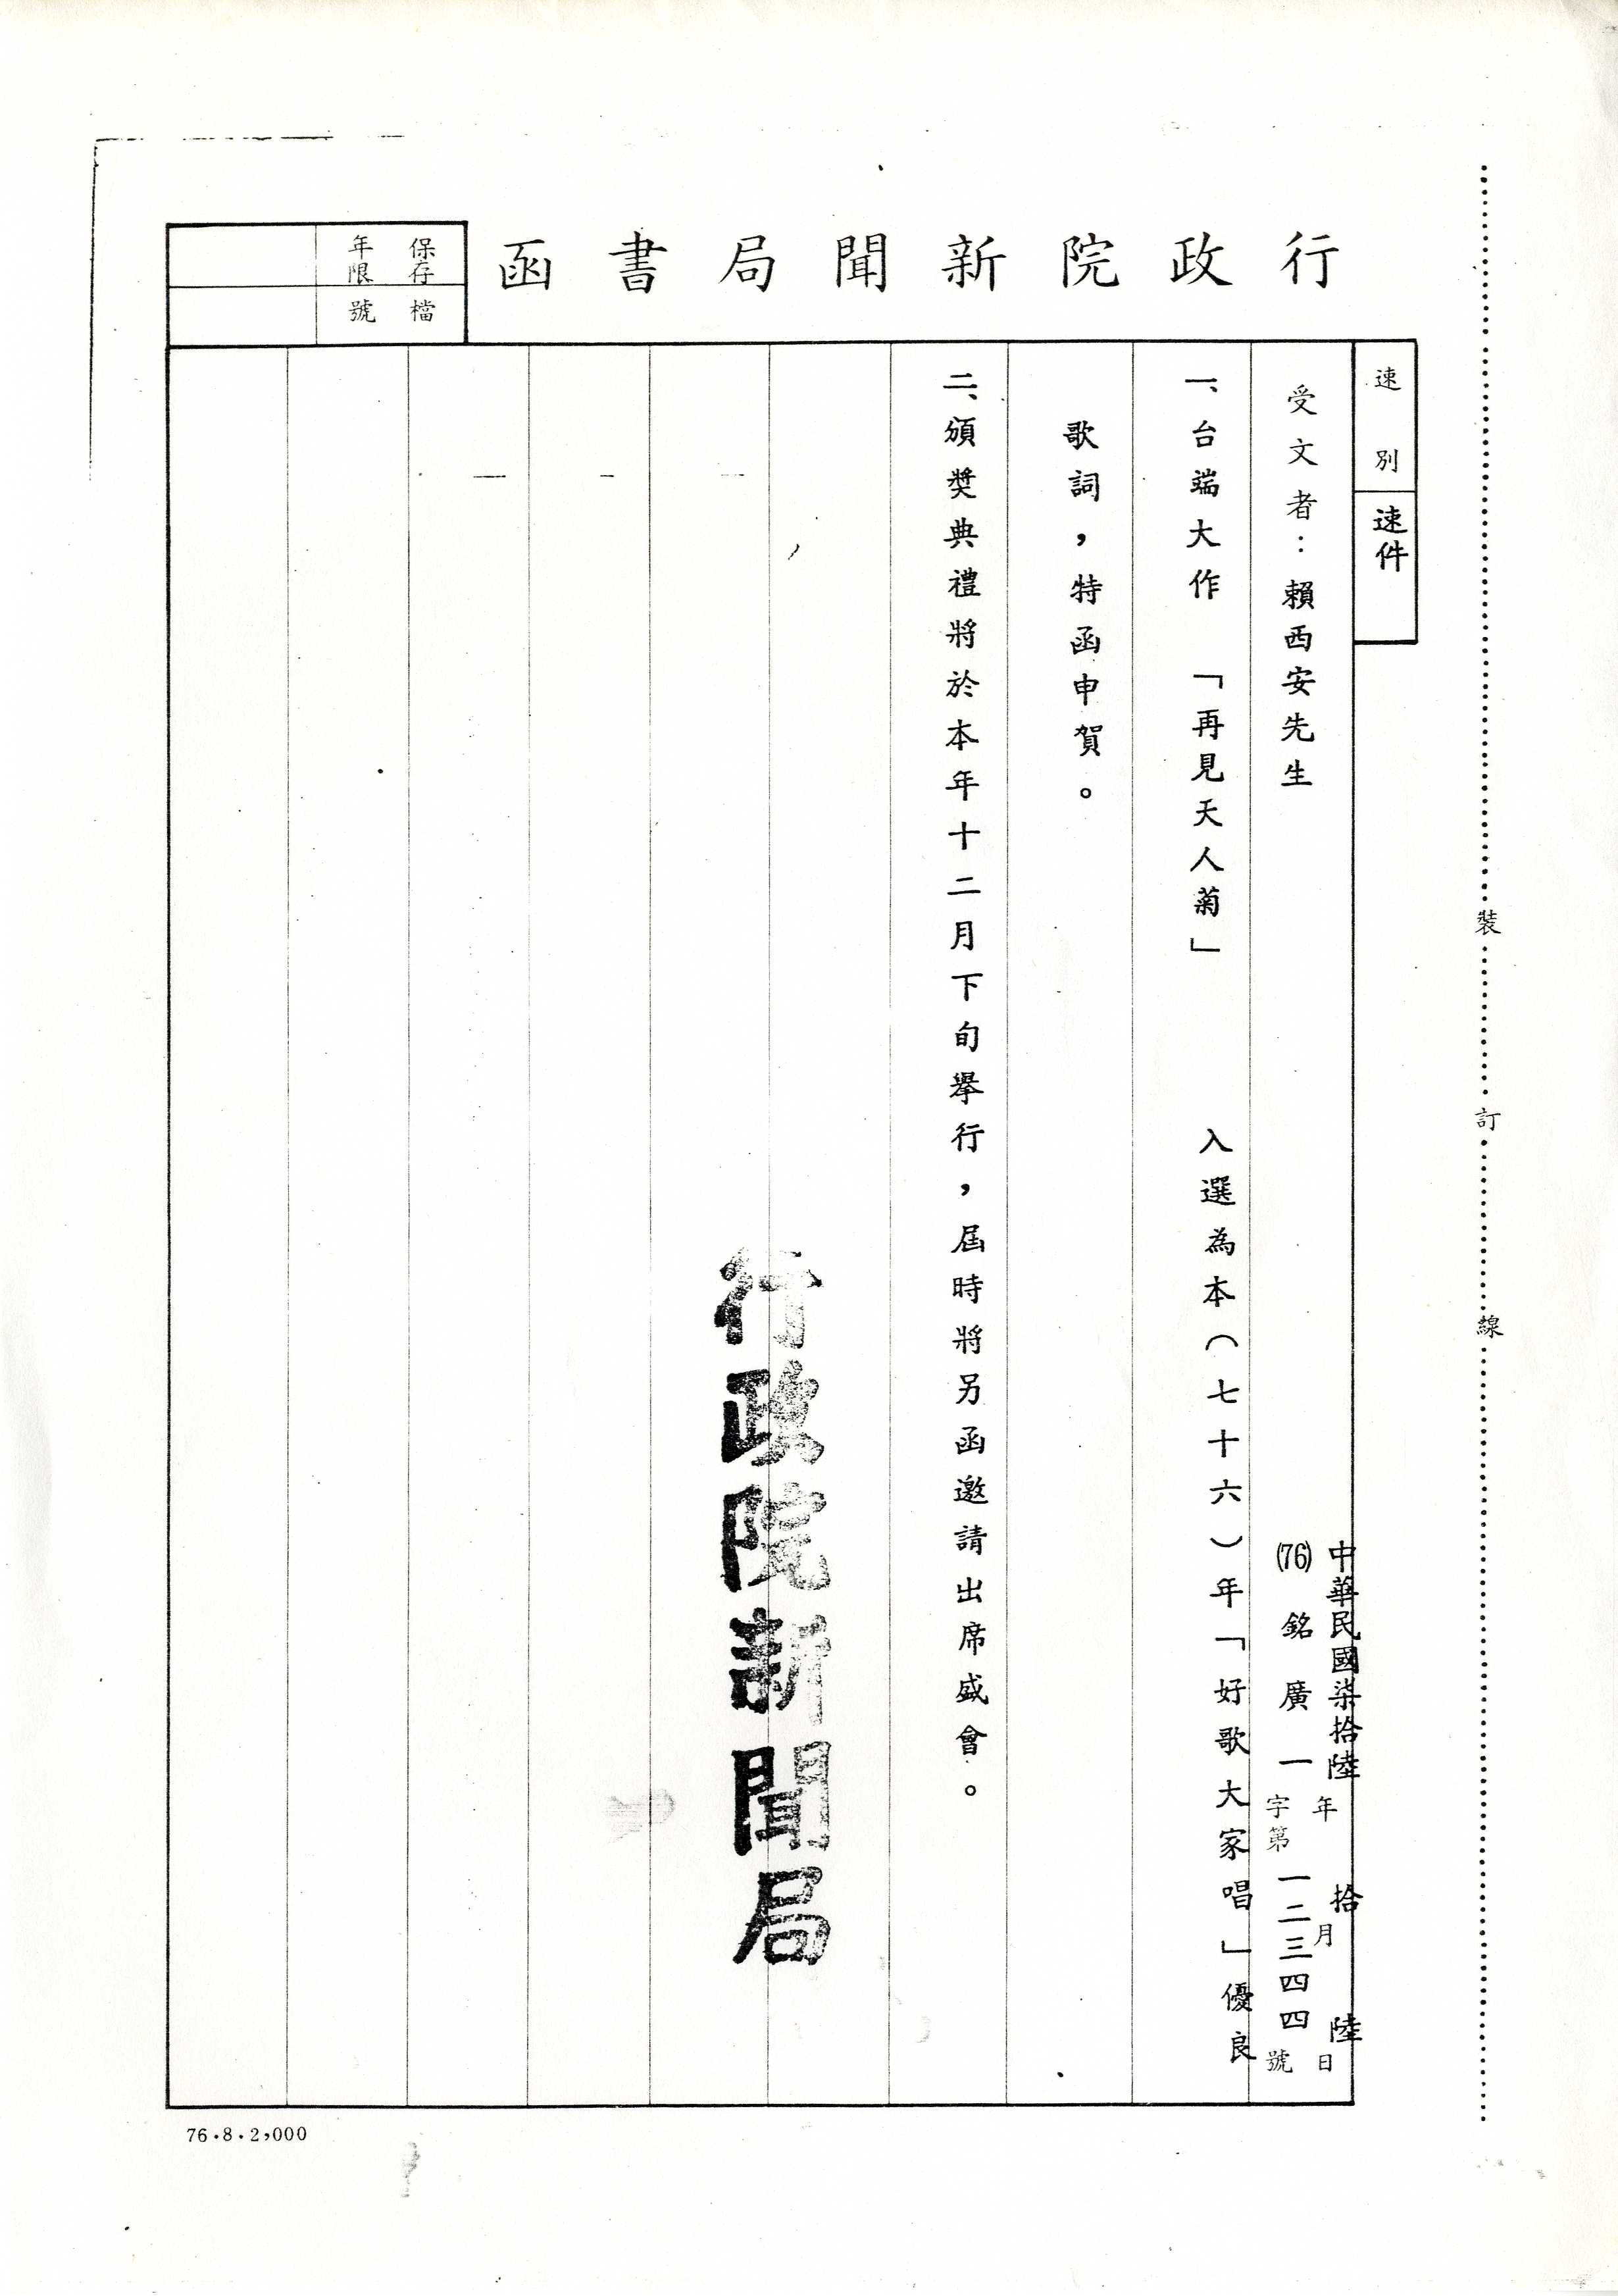 行政院新聞局書函
保存年限
檔號
速別
速件
中華民國柒拾陸年拾月陸日
(76)銘廣一字第一二三四四號
受文者：賴西安先生
一、台端大作「再見天人菊」入選為本（七十六）年「好歌大家唱」優良
歌詞，特函申賀。
二、頒獎典禮將於本年十二月下旬舉行，屆時將另函邀請出席盛會。
行政院新聞局
裝訂線
76.8.2,000